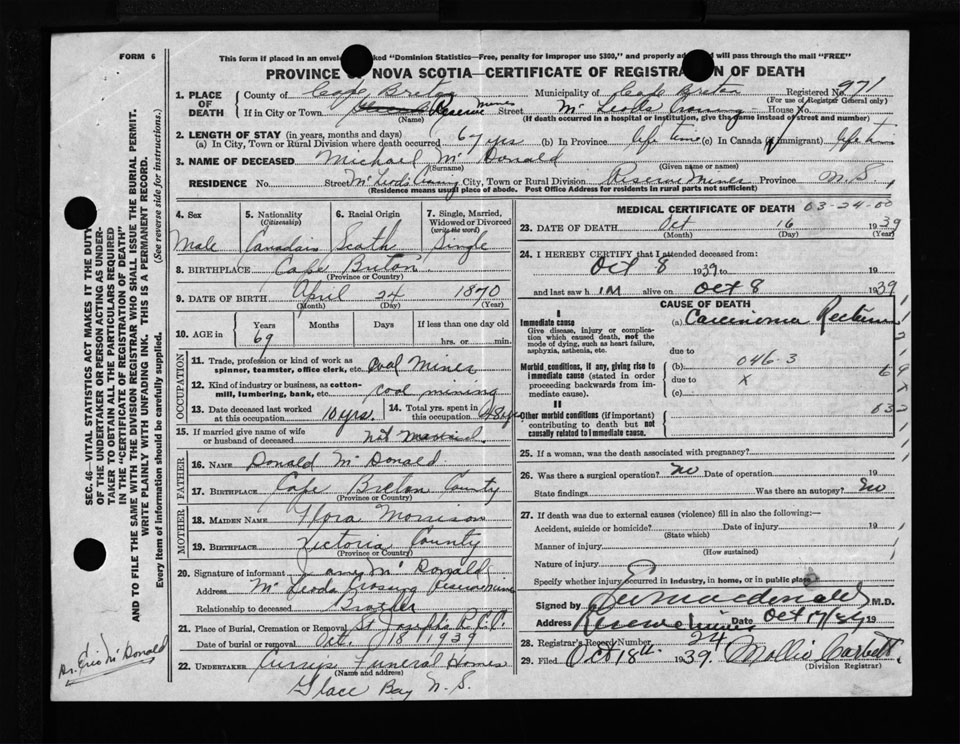 FORM 6
This form if placed in an envelope marked "Dominion Statistics—Free, penalty for improper use $300," and properly addressed will pass through the mail "FREE"
PROVINCE OF NOVA SCOTIA—CERTIFICATE OF REGISTRATION OF DEATH
1. PLACE OF DEATH
County of Cape Breton Municipality of Cape Breton Registered No. 971
(For use of Registrar General only)
If in City or Town Reserve Mines Street McLeods Crossing House No.
(Name) (If death occurred in a hospital or institution, give the name instead of street and number)
2. LENGTH OF STAY (in years, months and days)
(a) In City, Town or Rural Division where death occurred 67 yrs (b) In Province life time (c) In Canada (if immigrant) life time
3. NAME OF DECEASED Michael Mc Donald
(Surname) (Given name or names)
RESIDENCE No. Street McLeods Crossing City, Town or Rural Division Reserve Mines Province N.S.
(Residence means usual place of abode. Post Office Address for residents in rural parts not sufficient)
4. Sex Male
5. Nationality (Citizenship) Canadain
6. Racial Origin Scoth
7. Single, Married, Widowed or Divorced (write the word) Single
8. BIRTHPLACE Cape Breton
(Province or Country)
9. DATE OF BIRTH April 24 1870
(Month) (Day) (Year)
10. AGE in Years Months Days If less than one day old
69 hrs. or min.
OCCUPATION
11. Trade, profession or kind of work as spinner, teamster, office clerk, etc. Coal Miner
12. Kind of industry or business, as cotton-mill, lumbering, bank, etc. coal mining
13. Date deceased last worked at this occupation 10 yrs.
14. Total yrs. spent in this occupation 48 yrs
15. If married give name of wife or husband of deceased not married.
FATHER
16. NAME Donald McDonald
17. BIRTHPLACE Cape Breton County
(Province or Country)
MOTHER
18. MAIDEN NAME Flora Morrison
19. BIRTHPLACE Victoria County
(Province or Country)
20. Signature of informant McDonald
Address McLeods Crossing Reserve Mines
Relationship to deceased Brother
21. Place of Burial, Cremation or Removal St Josephs R.C.C.
Date of burial or removal Oct. 18 1939
22. UNDERTAKER Funeral Homes
(Name and address)
Glace Bay N.S.
MEDICAL CERTIFICATE OF DEATH 03-24-00
23. DATE OF DEATH Oct 16 1939
(Month) (Day) (Year)
24. I HEREBY CERTIFY that I attended deceased from:
Oct 8 1939 to 19
and last saw h im alive on Oct 8 1939
CAUSE OF DEATH
I
Immediate cause
Give disease, injury or complication which caused death, not the mode of dying, such as heart failure, asphyxia, asthenia, etc.
(a) Carcinoma Rectum
due to
(b) 046-3
Morbid conditions, if any, giving rise to immediate cause (stated in order proceeding backwards from immediate cause).
due to x
(c)
II
Other morbid conditions (if important) contributing to death but not causally related to immediate cause.
25. If a woman, was the death associated with pregnancy?
26. Was there a surgical operation? no Date of operation 19
State findings Was there an autopsy? no
27. If death was due to external causes (violence) fill in also the following:
Accident, suicide or homicide? Date of injury 19
(State which)
Manner of injury
(How sustained)
Nature of injury
Specify whether injury occurred in industry, in home, or in public place
Signed by Macdonald M.D.
Address Reserve Mines Date Oct 17/39
28. Registrar's Record Number 24
29. Filed Oct 18th 1939. Mollie Corbett
(Division Registrar)
SEC. 46—VITAL STATISTICS ACT MAKES IT THE DUTY
OF THE UNDERTAKER OR PERSON ACTING AS UNDER-
TAKER TO OBTAIN ALL THE PARTICULARS REQUIRED
IN THE "CERTIFICATE OF REGISTRATION OF DEATH"
AND TO FILE THE SAME WITH THE DIVISION REGISTRAR WHO SHALL ISSUE THE BURIAL PERMIT.
WRITE PLAINLY WITH UNFADING INK. THIS IS A PERMANENT RECORD.
Every item of information should be carefully supplied. (See reverse side for instructions.)
Dr. Eric McDonald